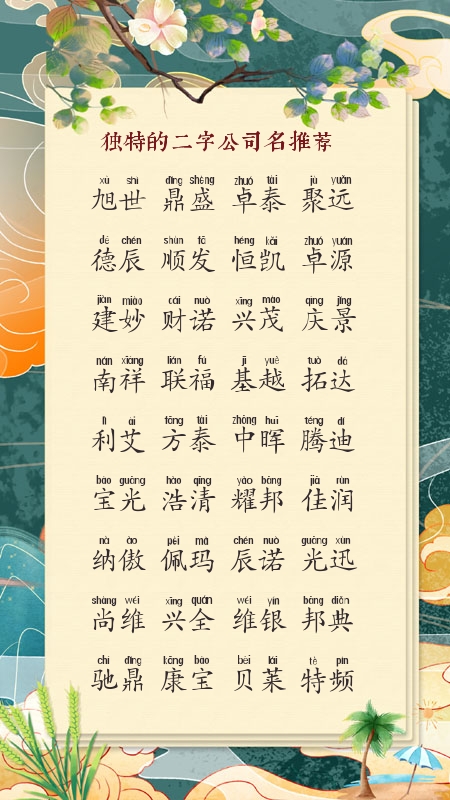 独特的二字公司名推荐
xù shì dǐng shèng zhuó tài jù yuǎn
旭世 鼎盛 卓泰 聚远
dé chén shùn fā héng kǎi zhuó yuán
德辰 顺发 恒凯 卓源
jiàn miào cái nuò xīng mào qìng jǐng
建妙 财诺 兴茂 庆景
nán xiáng lián fú jī yuè tuò dá
南祥 联福 基越 拓达
lì ài fāng tài zhōng huī téng dí
利艾 方泰 中晖 腾迪
bǎo guāng hào qīng yào bāng jiā rùn
宝光 浩清 耀邦 佳润
nà ào pèi mǎ chén nuò guāng xùn
纳傲 佩玛 辰诺 光迅
shàng wéi xīng quán wéi yín bāng diǎn
尚维 兴全 维银 邦典
chí dǐng kāng bǎo bèi lái tè pín
驰鼎 康宝 贝莱 特频